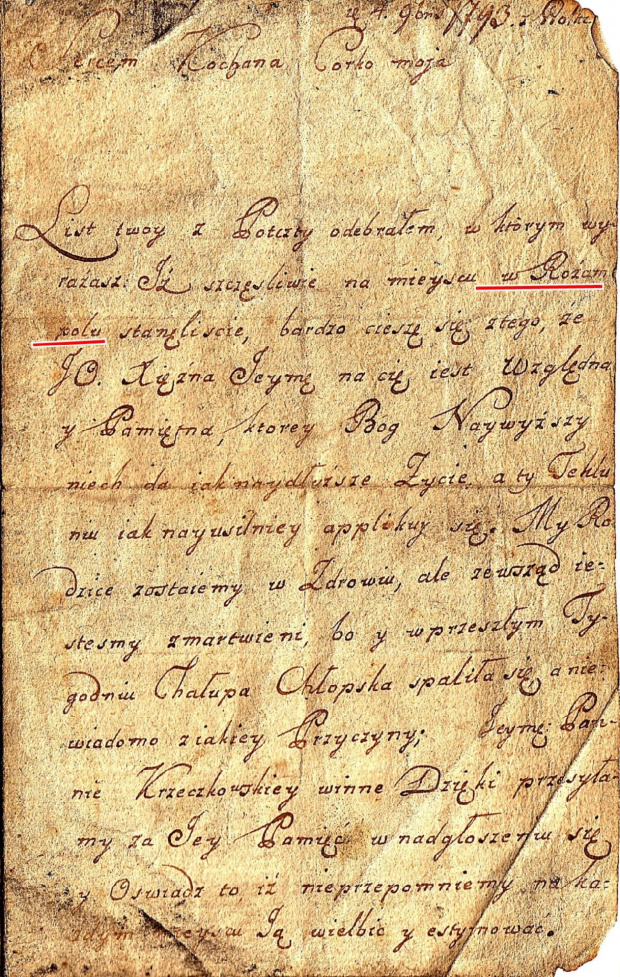 4. 9bris 1793.
Sercem Kochana Corko moja
List twoy z Potczty odebrałem, w którym wy-
rażasz: Iż szczęsliwie na mieyscu w Rożam
polu stanęliscie, bardzo cieszę się ztego, że
JO. Xężna Jeymę na cię iest Względna
y Pamiętna, ktorey Bog Naywyższy
niech da iak naydłuższe Zycie, a ty Teklu
nu iak nayusilniey applikuy się. My Ro
dzice zostaiemy w Zdrowiu, ale zewsząd ie-
stesmy zmartwieni, bo y wprzeszłym Ty-
godniu Chałupa Chłopska spaliła się, a nie-
wiadomo ziakiey Przyczyny; Jeymę Pan-
nie Krzeczkowskiey winne Dzięki przesyła-
my za Jey Pamięć w nadgłoszeniu się
y Oswiadz to, iż nieprzepomniemy na ka-
żdym mieyscu Ją wielbic y estymowac.